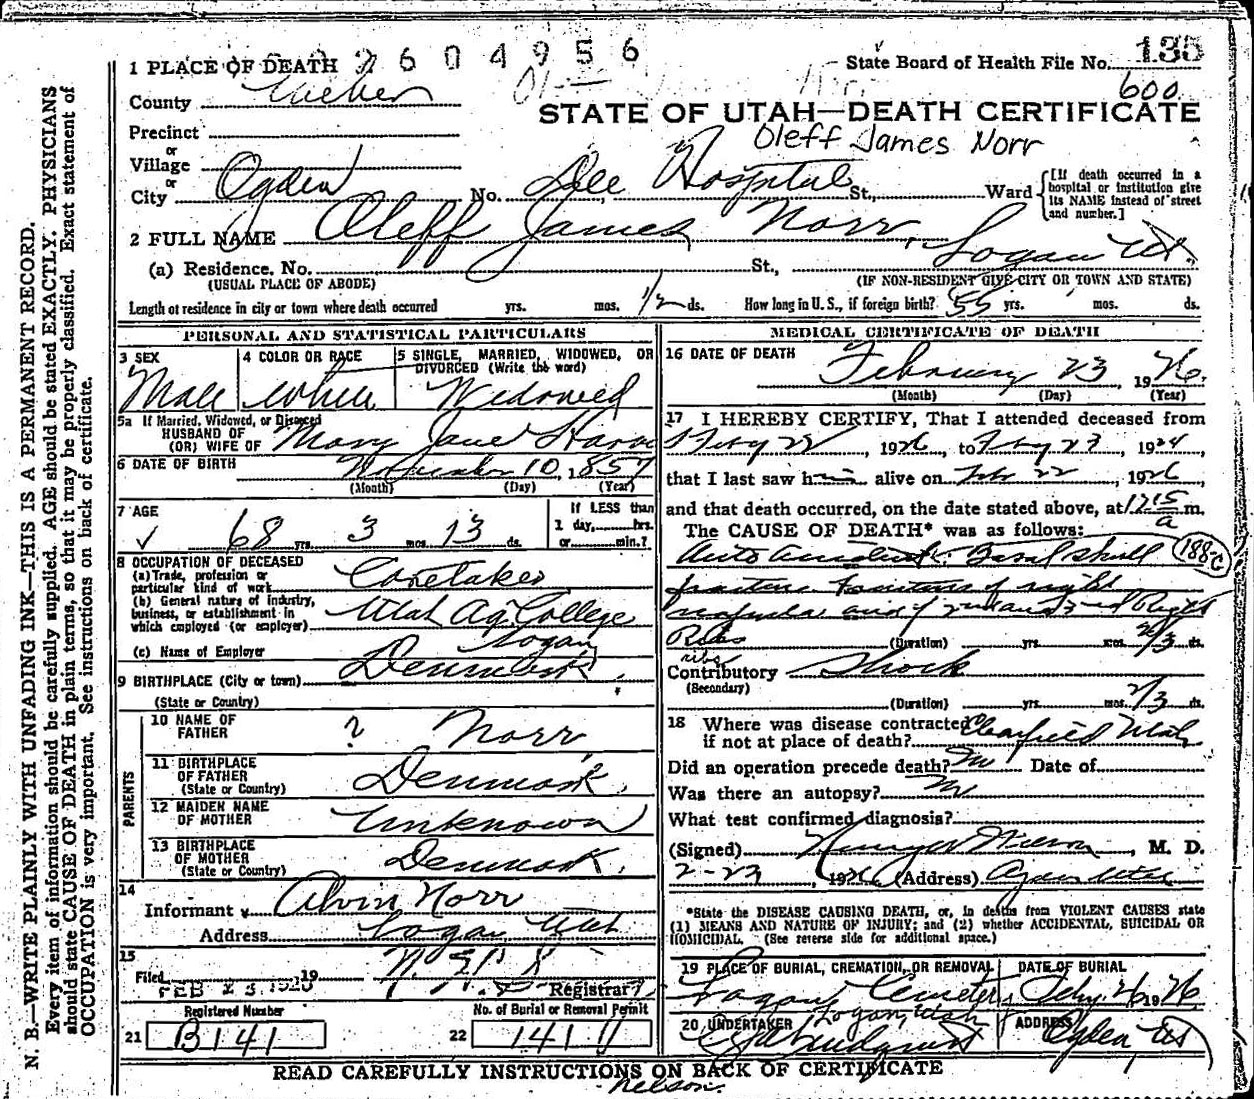 2604956
135
1 PLACE OF DEATH
State Board of Health File No.
600
County Weber
STATE OF UTAH—DEATH CERTIFICATE
Precinct
Oleff James Norr
or
Village
or
City Ogden No. Dee Hospital St., Ward
[If death occurred in a hospital or institution give its NAME instead of street and number.]
2 FULL NAME Oleff James Norr,
(a) Residence. No. St., Logan Ut
(USUAL PLACE OF ABODE) (IF NON-RESIDENT GIVE CITY OR TOWN AND STATE)
Length of residence in city or town where death occurred yrs. mos. 1/2 ds. How long in U. S., if foreign birth? 55 yrs. mos. ds.
PERSONAL AND STATISTICAL PARTICULARS
3 SEX
Male
4 COLOR OR RACE
White
5 SINGLE, MARRIED, WIDOWED, OR DIVORCED (Write the word)
Widowed
5a If Married, Widowed, or Divorced
HUSBAND OF
(OR) WIFE OF Mary Jane
6 DATE OF BIRTH November 10, 1857
(Month) (Day) (Year)
7 AGE
68 yrs. 3 mos. 13 ds.
If LESS than
1 day, hrs.
or min.?
8 OCCUPATION OF DECEASED
(a) Trade, profession or
particular kind of work Caretaker
(b) General nature of industry,
business, or establishment in
which employed (or employer) Utah Ag College
Logan
(c) Name of Employer
9 BIRTHPLACE (City or town) Denmark
(State or Country)
PARENTS
10 NAME OF
FATHER ? Norr
11 BIRTHPLACE
OF FATHER
(State or Country) Denmark
12 MAIDEN NAME
OF MOTHER Unknown
13 BIRTHPLACE
OF MOTHER
(State or Country) Denmark.
14
Informant Alvin Norr
Address Logan Utah
15
Filed 19
FEB 23 1926
Registrar
Registered Number
21 B141
No. of Burial or Removal Permit
22 141
MEDICAL CERTIFICATE OF DEATH
16 DATE OF DEATH
February 23 1926.
(Month) (Day) (Year)
17 I HEREBY CERTIFY, That I attended deceased from
Feby 22, 1926, to Feby 23, 1926
that I last saw him alive on Feb 22, 1926
and that death occurred, on the date stated above, at 12 15 a m.
The CAUSE OF DEATH* was as follows:
Auto accident. Basal skull
188-c
fracture Fracture of right
and of 2nd and 3rd Right
Ribs
ribs
(Duration) yrs. mos. 2/3 ds.
Contributory Shock
(Secondary)
(Duration) yrs. mos. 2/3 ds.
18 Where was disease contracted
if not at place of death? Clearfield Utah
Did an operation precede death? No Date of
Was there an autopsy? No
What test confirmed diagnosis?
(Signed) Wilson, M. D.
2-23, 1926 (Address) Ogden Utah
*State the DISEASE CAUSING DEATH, or, in deaths from VIOLENT CAUSES state
(1) MEANS AND NATURE OF INJURY; and (2) whether ACCIDENTAL, SUICIDAL OR
HOMICIDAL. (See reverse side for additional space.)
19 PLACE OF BURIAL, CREMATION, OR REMOVAL
Logan Cemetery
Logan, Utah
DATE OF BURIAL
Feby. 26 1926
20 UNDERTAKER
Lindquist
ADDRESS
Ogden, Ut
READ CAREFULLY INSTRUCTIONS ON BACK OF CERTIFICATE
Nelson.
N. B.—WRITE PLAINLY WITH UNFADING INK—THIS IS A PERMANENT RECORD.
Every item of information should be carefully supplied. AGE should be stated EXACTLY. PHYSICIANS
should state CAUSE OF DEATH in plain terms, so that it may be properly classified. Exact statement of
OCCUPATION is very important. See instructions on back of certificate.